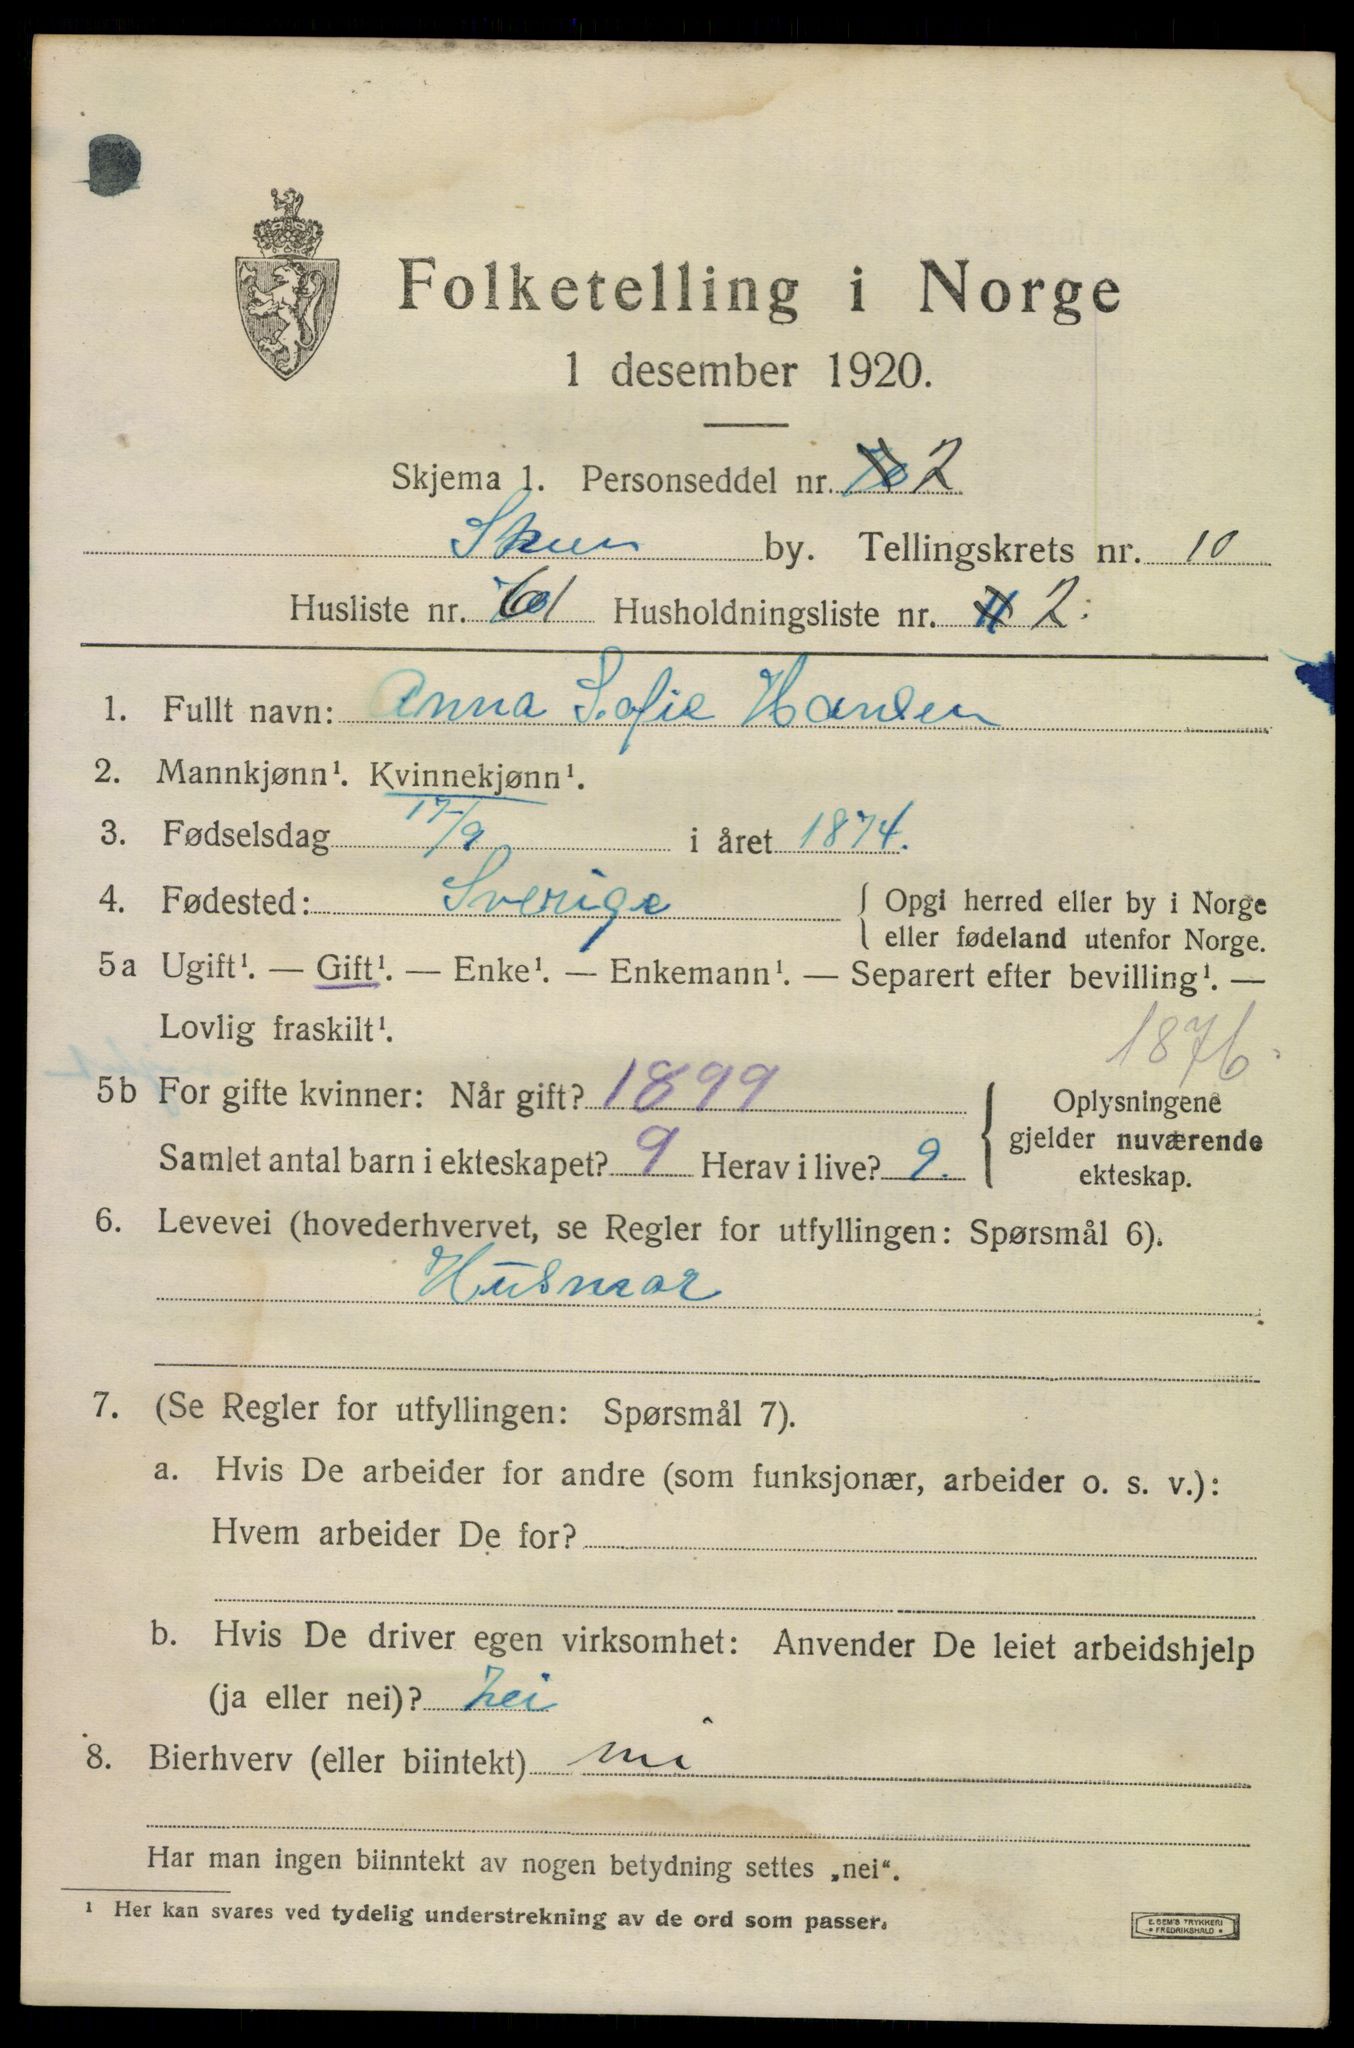 Folketelling i Norge
1 desember 1920.
Skjema 1. Personseddel nr. 2
Skien by. Tellingskrets nr. 10
Husliste nr. 61 Husholdningsliste nr. 2
1. Fullt navn: Anna Sofie Hansen
2. Mannkjønn¹. Kvinnekjønn¹.
3. Fødselsdag 17/9 i året 1874.
4. Fødested: Sverige { Opgi herred eller by i Norge
eller fødeland utenfor Norge.
5a Ugift¹. — Gift¹. — Enke¹. — Enkemann¹. — Separert efter bevilling¹. —
Lovlig fraskilt¹.
1876
5b For gifte kvinner: Når gift? 1899
Samlet antal barn i ekteskapet? 9 Herav i live? 9.
Oplysningene
gjelder nuværende
ekteskap.
6. Levevei (hovederhvervet, se Regler for utfyllingen: Spørsmål 6).
Husmor
7. (Se Regler for utfyllingen: Spørsmål 7).
a. Hvis De arbeider for andre (som funksjonær, arbeider o. s. v.):
Hvem arbeider De for?
b. Hvis De driver egen virksomhet: Anvender De leiet arbeidshjelp
(ja eller nei)? nei
8. Bierhverv (eller biintekt) nei
Har man ingen biinntekt av nogen betydning settes „nei“.
¹ Her kan svares ved tydelig understrekning av de ord som passer.
E. SEM'S TRYKKERI
FREDRIKSHALD